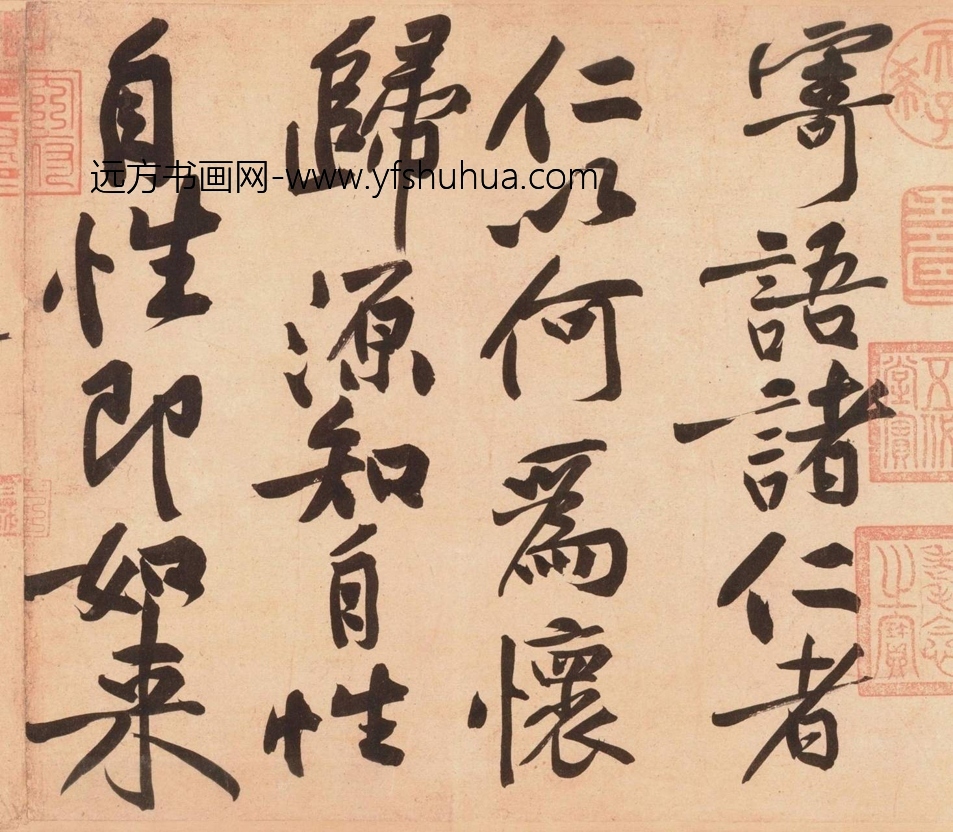 寄語諸仁者
仁以何為懷
歸源知自性
自性即如来
远方书画网-www.yfshuhua.com